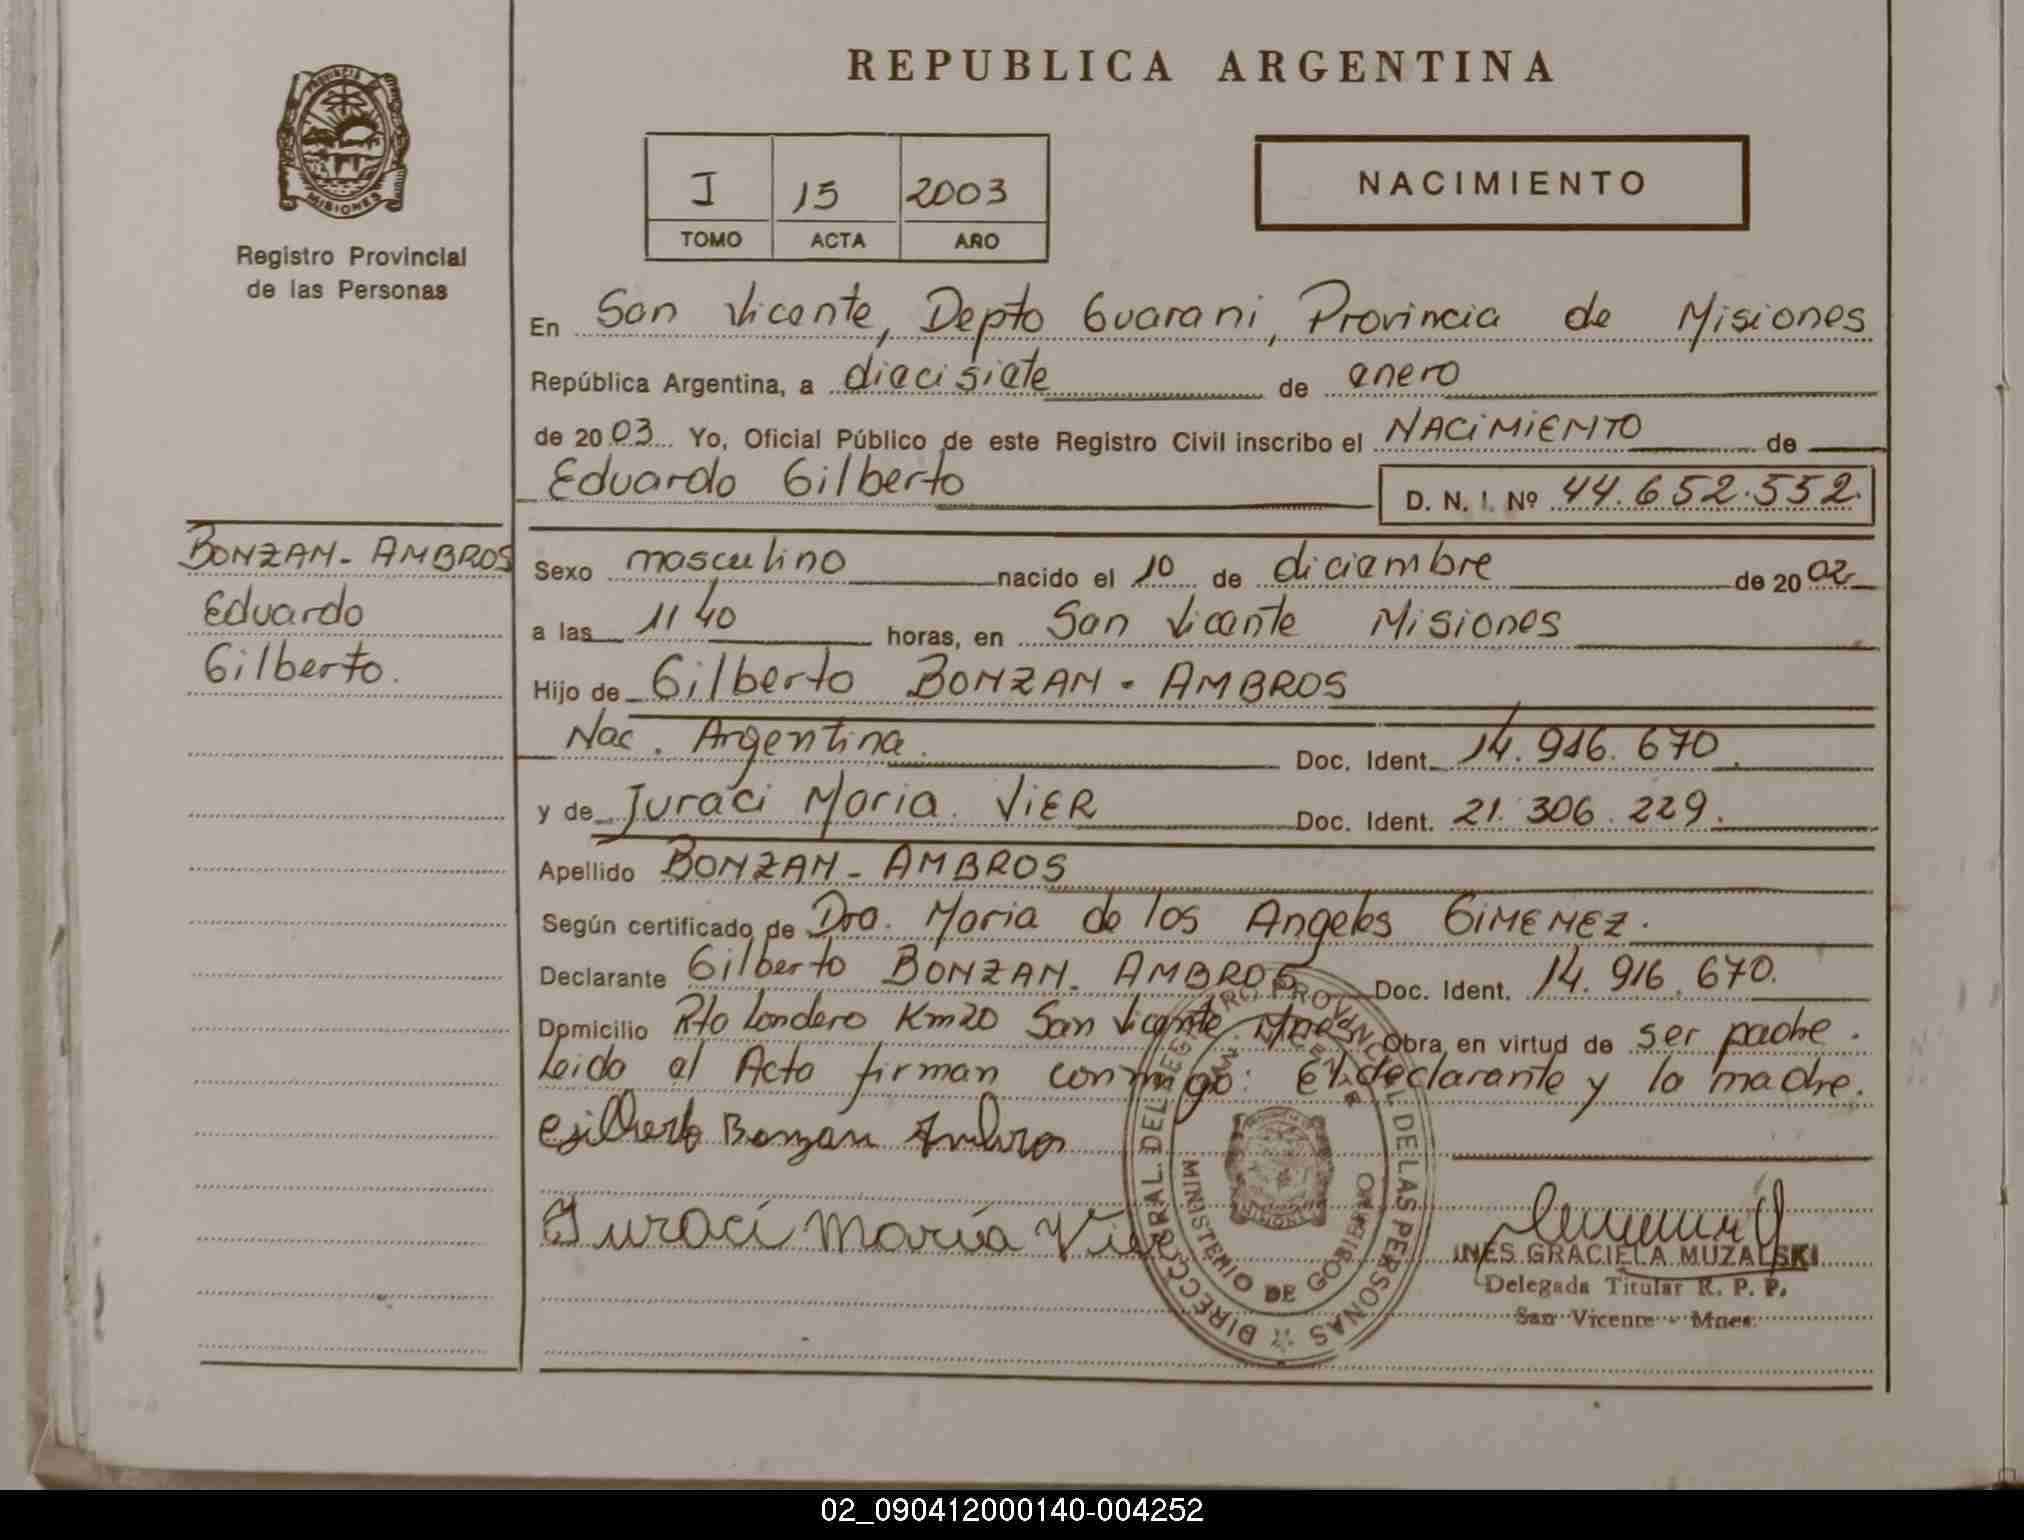 REPUBLICA ARGENTINA
PROVINCIA DE MISIONES
Registro Provincial
de las Personas
I 15 2003
TOMO ACTA AÑO
NACIMIENTO
En San Vicente, Depto Guarani, Provincia de Misiones
República Argentina, a diecisiete de enero
de 2003 Yo, Oficial Público de este Registro Civil inscribo el NACIMIENTO de
Eduardo Gilberto D. N. I. Nº 44.652.552.
BONZAN - AMBROS
Eduardo
Gilberto.
Sexo masculino nacido el 10 de diciembre de 2002
a las 11 40 horas, en San Vicente Misiones
Hijo de Gilberto BONZAN - AMBROS
Nac. Argentina. Doc. Ident. 14.916.670.
y de Juraci Maria. VIER Doc. Ident. 21.306.229.
Apellido BONZAN - AMBROS
Según certificado de Dra. Maria de los Angeles GIMENEZ.
Declarante Gilberto BONZAN - AMBROS Doc. Ident. 14.916.670.
Domicilio Pto Londero Km 20 San Vicente Mnes Obra en virtud de ser padre.
Leido el Acta firman conmigo: El declarante y la madre.
Gilberto Bonzan Ambros
Juraci María Vier
DIRECC. GRAL. DEL REGISTRO PROVINCIAL DE LAS PERSONAS
SAN VICENTE
MINISTERIO DE GOBIERNO
INES GRACIELA MUZALSKI
Delegada Titular R. P. P.
San Vicente - Mnes.
02_090412000140-004252